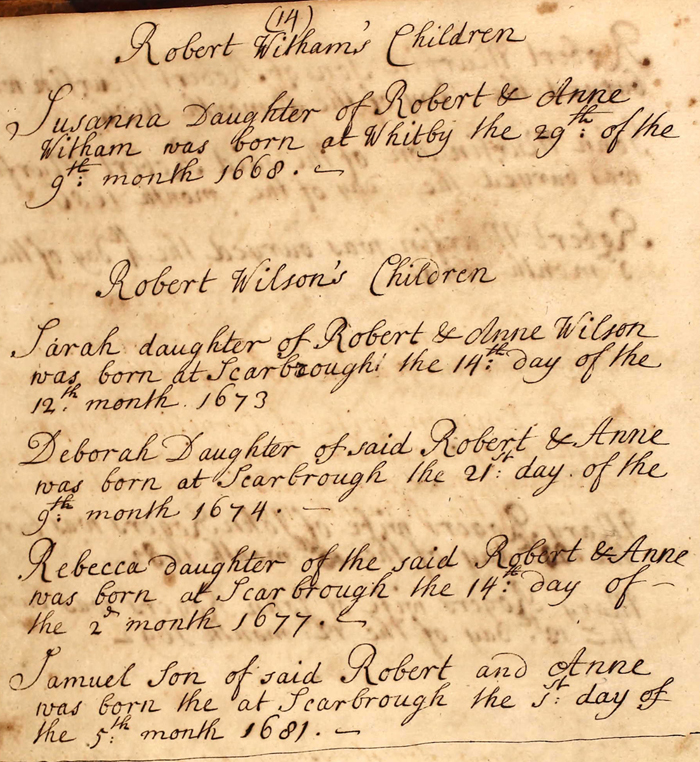 (14)
Robert Witham's Children
Susanna Daughter of Robert & Anne
Witham was born at Whitby the 29th: of the
9th: month 1668. —
Robert Wilson's Children
Sarah daughter of Robert & Anne Wilson
was born at Scarbrough: the 14th: day of the
12th: month 1673
Deborah Daughter of said Robert & Anne
was born at Scarbrough the 21st: day of the
9th: month 1674. —
Rebecca daughter of the said Robert & Anne
was born at Scarbrough the 14th: day of —
the 2d month 1677. —
Samuel Son of said Robert and Anne
was born the at Scarbrough the 1st: day of
the 5th: month 1681. —